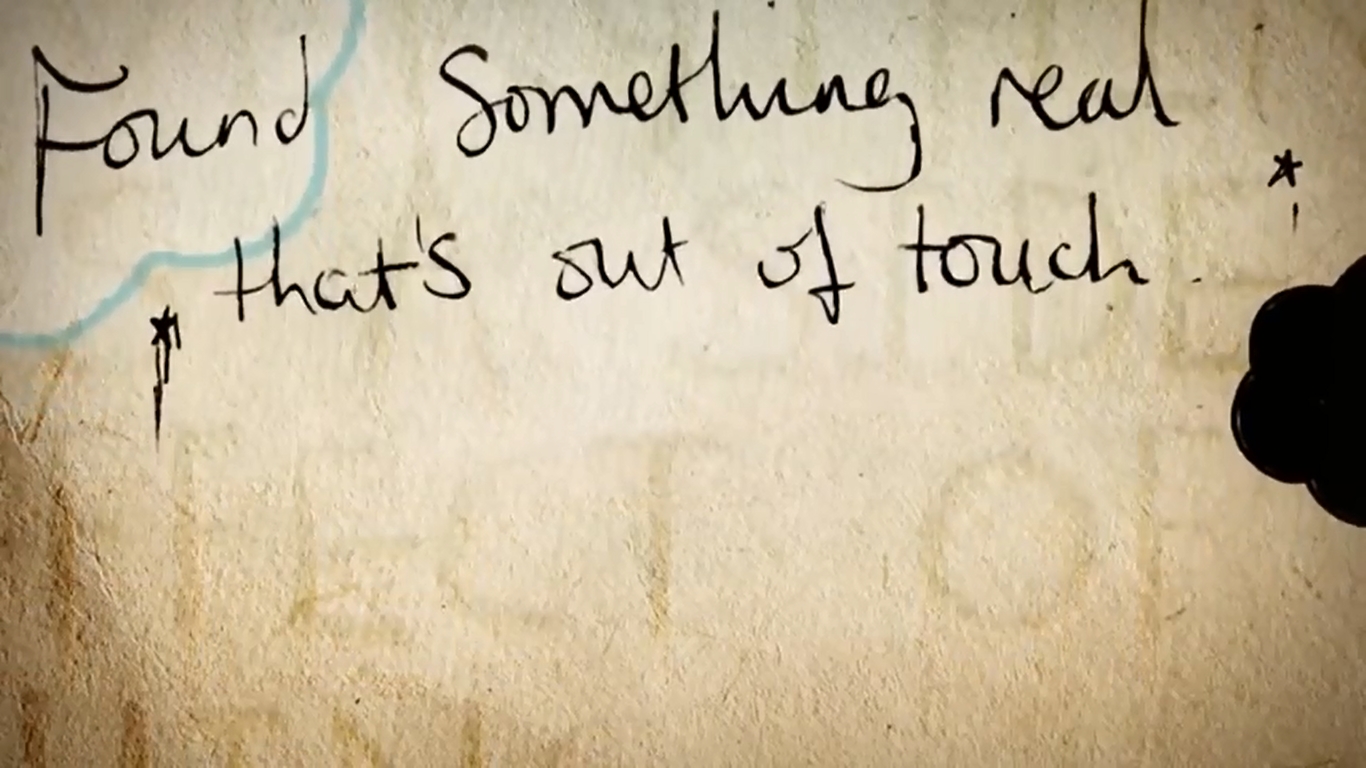 Found Something real
that's out of touch.